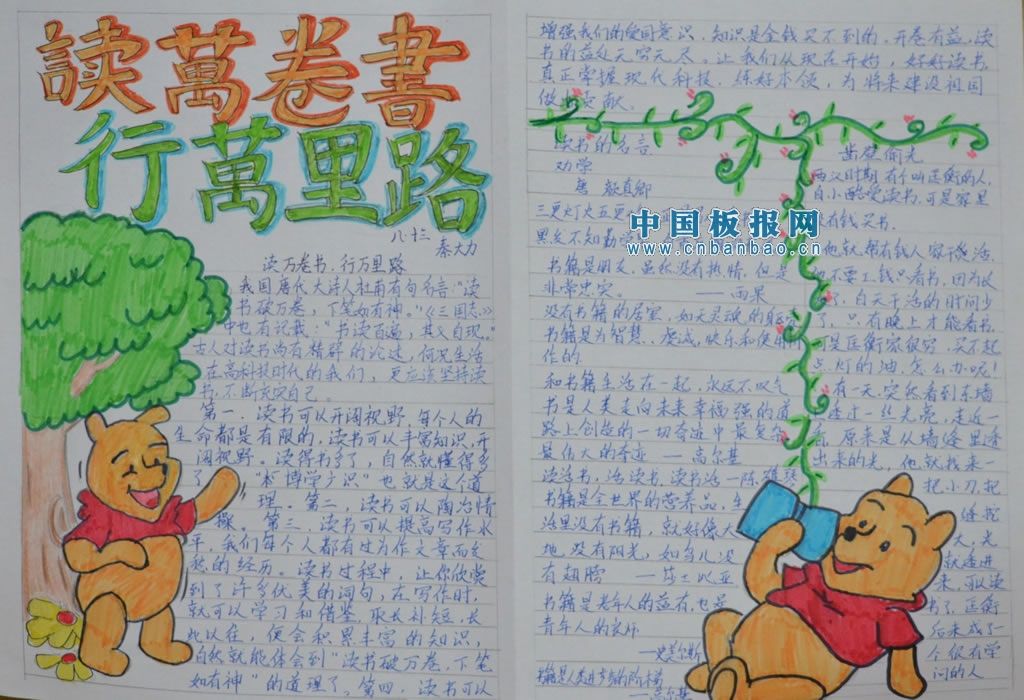 讀萬卷書
行萬里路
八.十三
秦大力
读万卷书,行万里路
我国唐代大诗人杜甫有句名言:"读
书破万卷,下笔如有神。"《三国志》
中也有记载:"书读百遍,其义自现。"
古人对读书尚有精辟的论述,何况生活
在高科技时代的我们,更应该坚持读
书,不断充实自己。
第一,读书可以开阔视野。每个人的
生命都是有限的,读书可以丰富知识,开
阔视野。读得书多了,自然就懂得多
了,"博学广识"也就是这个道
理。第二,读书可以陶冶情
操。第三,读书可以提高写作水
平,我们每个人都有过为作文章而发
愁的经历。读书过程中,让你欣赏
到了许多优美的词句,在写作时,
就可以学习和借鉴,取长补短,长
此以往,便会积累丰富的知识,
自然就能体会到"读书破万卷,下笔
如有神"的道理了。第四,读书可以
增强我们的爱国意识,知识是金钱买不到的。开卷有益,读
书的益处无穷无尽。让我们从现在开始,好好读书,
真正掌握现代科技,练好本领,为将来建设祖国
做出贡献。
读书的名言
劝学
唐 颜真卿
三更灯火五更
黑发不知勤
书籍是朋友,虽然没有热情,但是
非常忠实。 ——雨果
没有书籍的居室,如无灵魂的躯
书籍是为智慧、虔诚、快乐和使用
作的
和书籍生活在一起,永远不叹气
书是人类走向未来幸福 强的道
路上创造的一切奇迹中最复杂
最伟大的奇迹 —高尔基
读活书,活读书,读书活—陈
书籍是全世界的营养品,生
活里没有书籍,就好像大
地没有阳光,如鸟儿没
有翅膀 —莎士比亚
书籍是老年人的益友,也是
青年人的良师
—史美尔斯
书籍是人类进步的阶梯
—高尔基
凿壁偷光
西汉时期,有个叫匡衡的人,
自小酷爱读书,可是家里
有钱买书
他就帮有钱人家干活
不要工钱只看书,因为长
了,白天干活的时间少
了,只有晚上才能看书
可是匡衡家很穷,买不起
点灯的油,怎么办呢!
有一天,突然看到东墙
透过一丝光亮,走近一
看,原来是从墙缝里透
出来的光,他就找来一
把小刀,把
缝挖
大,光
就透进
来,可以读
书了,匡衡
后来成了一
个很有学
问的人
中国板报网
www.cnbanbao.cn